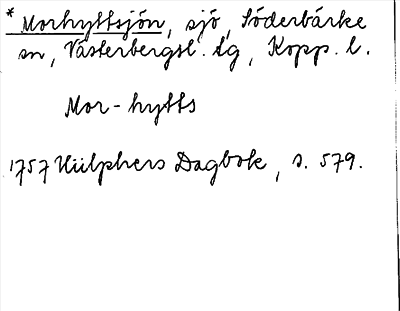 * Morhyttsjön, sjö, Söderbärke
sn, Västerbergsl. dg, Kopp. l.
Mor-hytts
1757 Hülphers Dagbok, s. 579.